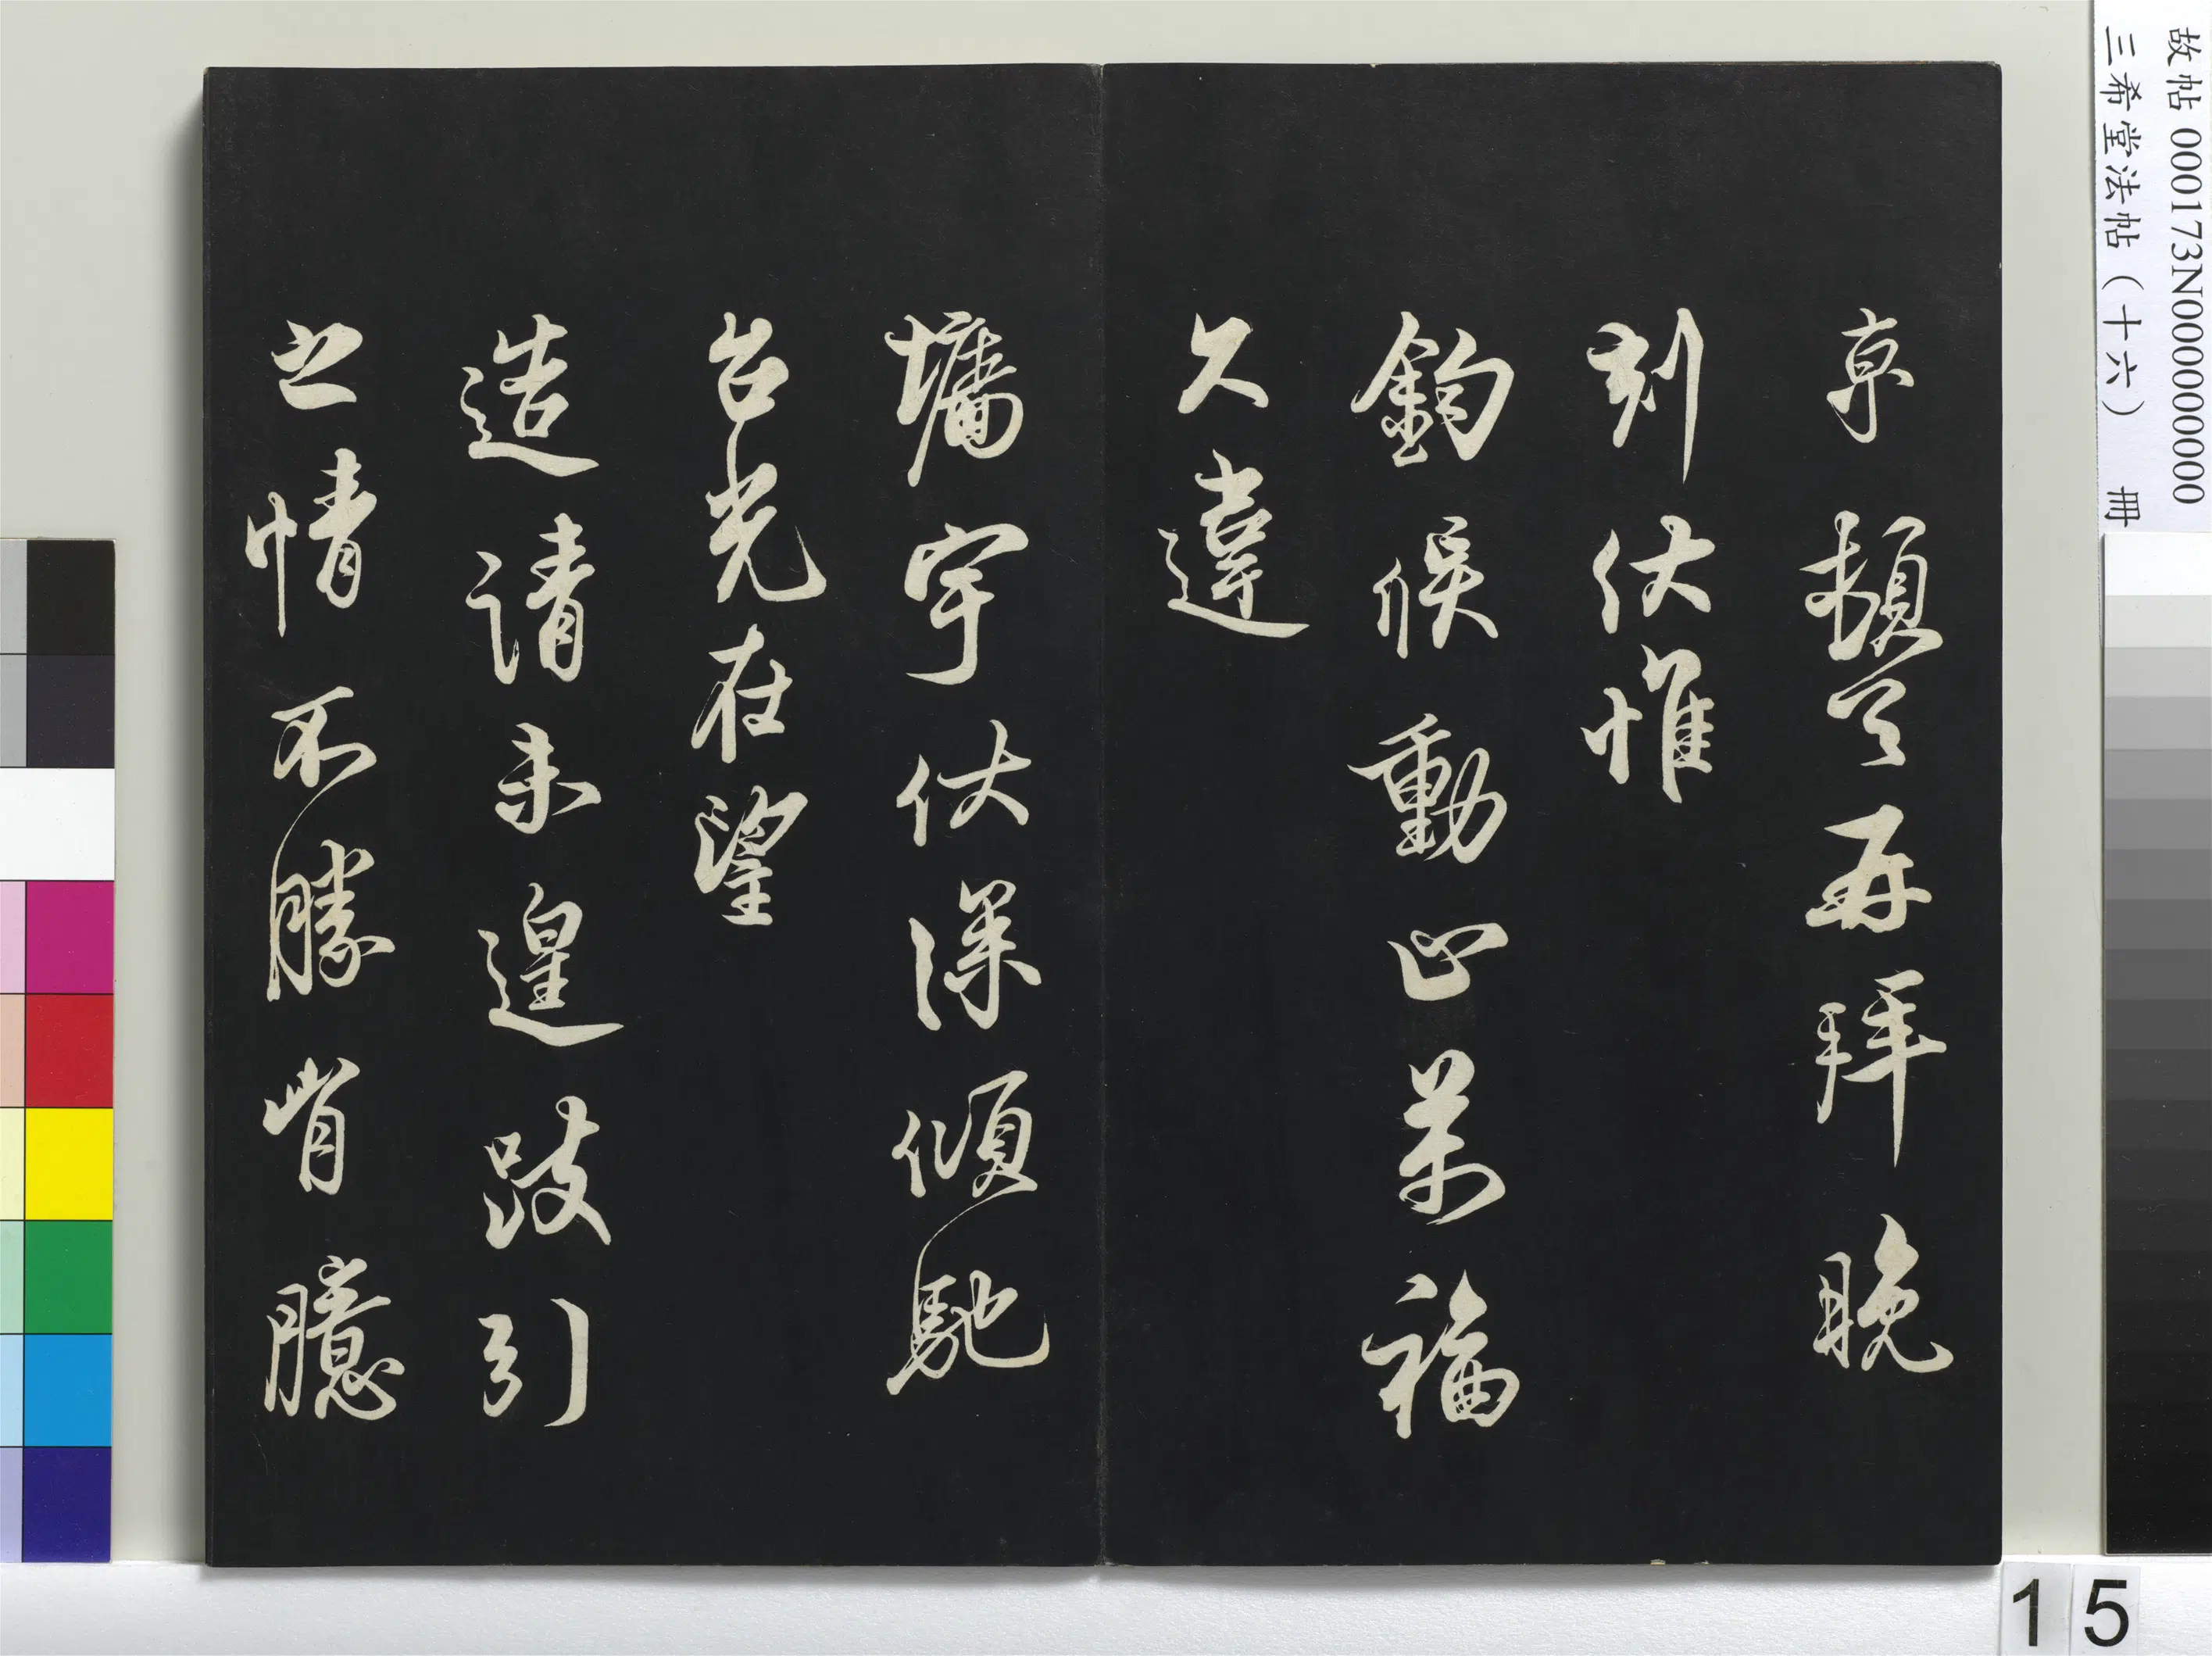 京頓首再拜晚
刻伏惟
鈞候動止萬福
久違
墉宇伏深傾馳
台光在望
造請未遑跂引
之情不勝胷臆
故帖 000173N000000000
三希堂法帖（十六） 冊
15